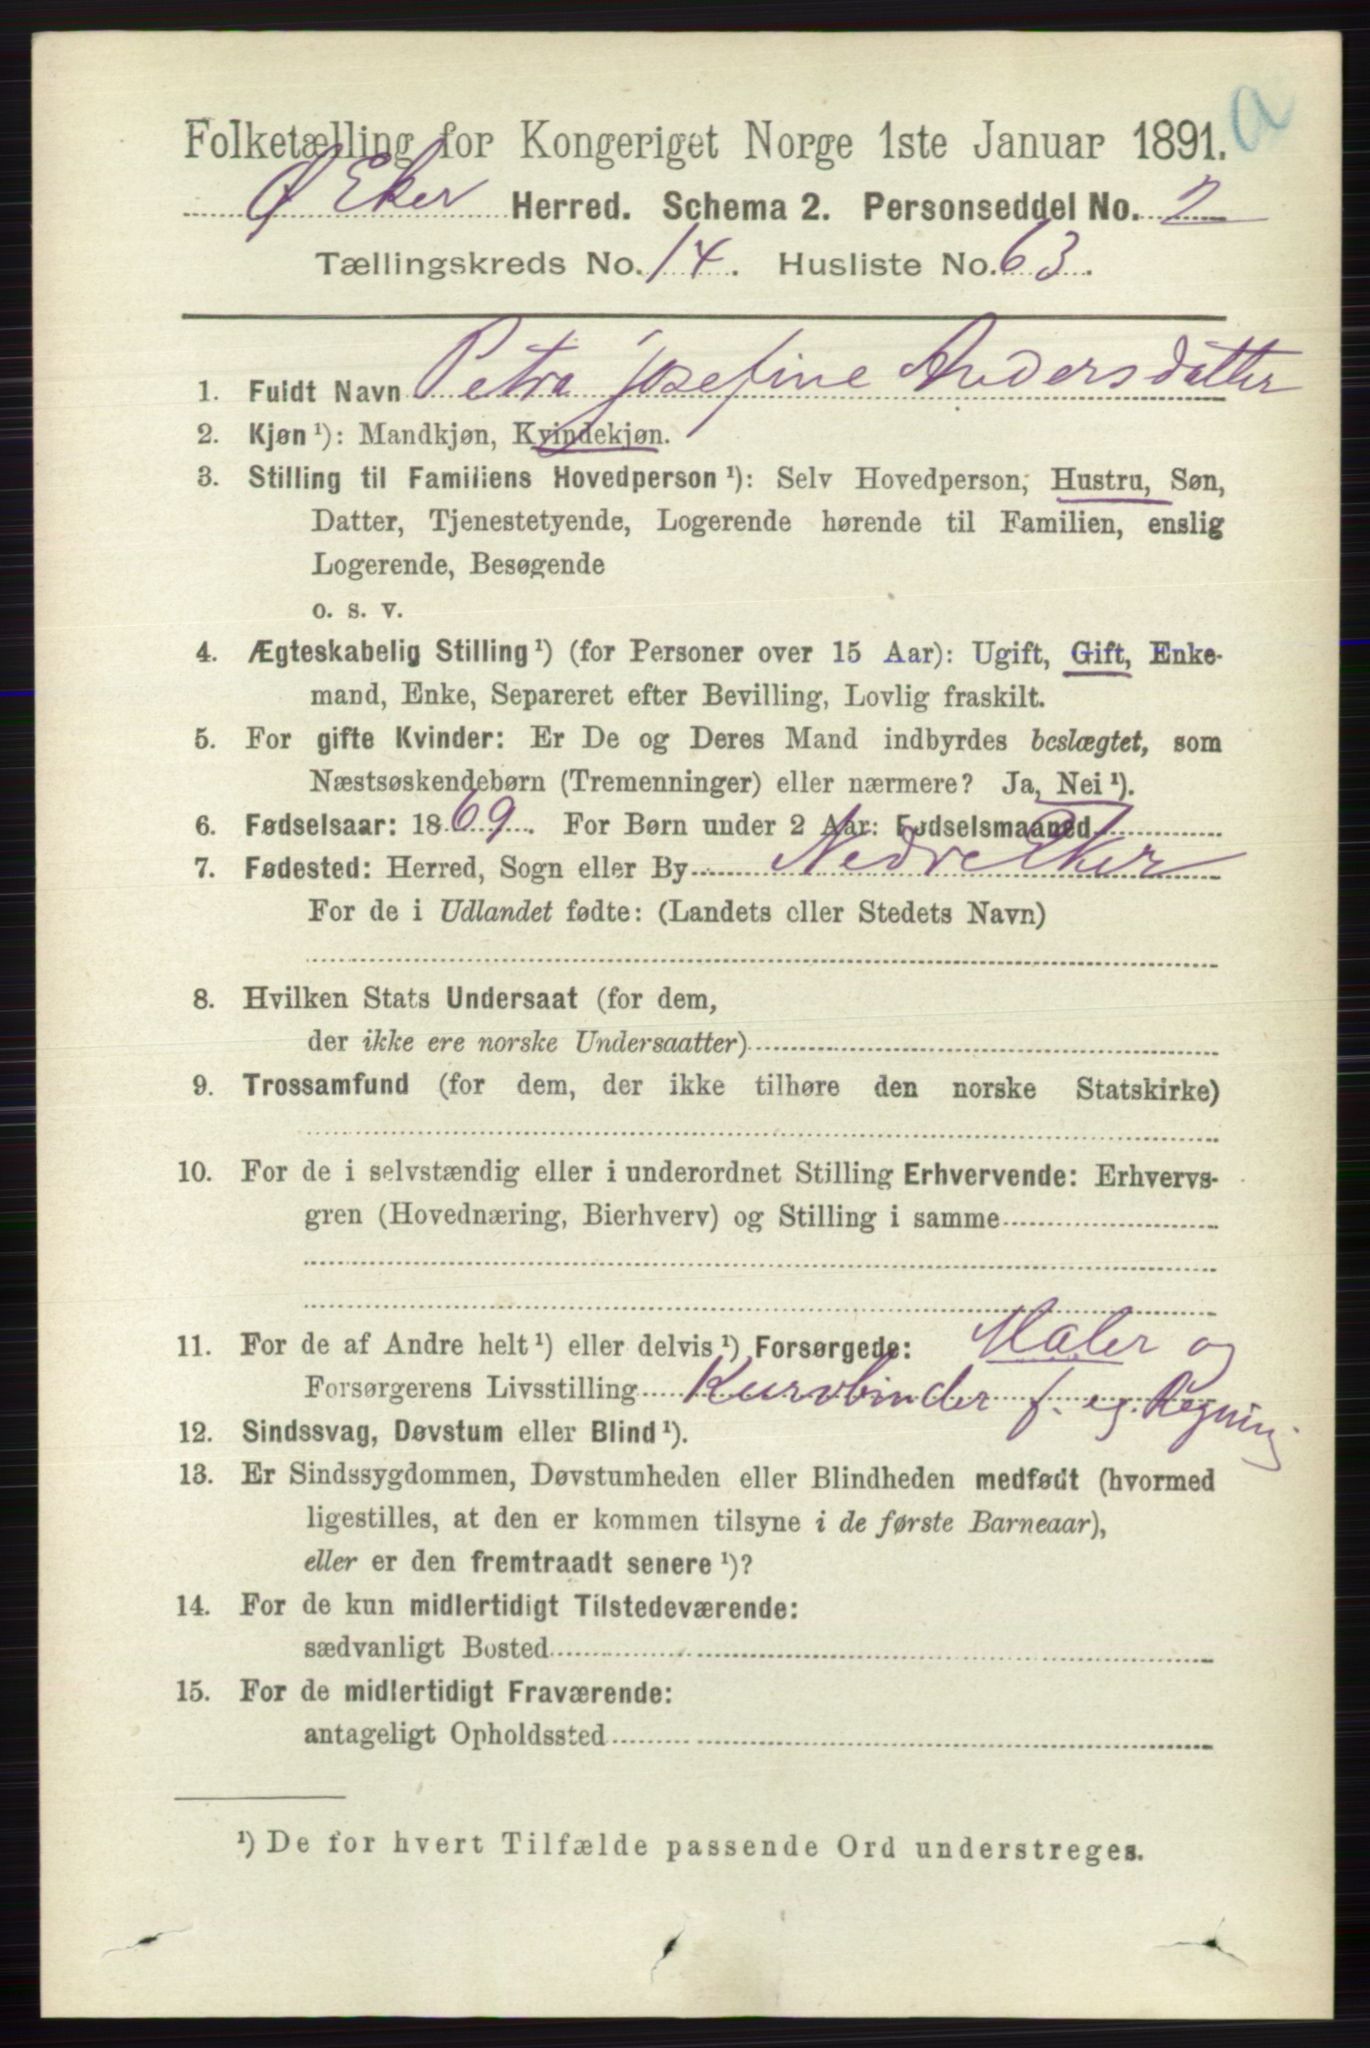 a
Folketælling for Kongeriget Norge 1ste Januar 1891.
Ø Eker Herred. Schema 2. Personseddel No. 2
Tællingskreds No. 14. Husliste No. 63.
1. Fuldt Navn Petra Josefine Andersdatter
2. Kjøn ¹): Mandkjøn, Kvindekjøn.
3. Stilling til Familiens Hovedperson ¹): Selv Hovedperson, Hustru, Søn,
Datter, Tjenestetyende, Logerende hørende til Familien, enslig
Logerende, Besøgende
o. s. v.
4. Ægteskabelig Stilling ¹) (for Personer over 15 Aar): Ugift, Gift, Enke-
mand, Enke, Separeret efter Bevilling, Lovlig fraskilt.
5. For gifte Kvinder: Er De og Deres Mand indbyrdes beslægtet, som
Næstsøskendebørn (Tremenninger) eller nærmere? Ja, Nei ¹).
6. Fødselsaar: 1869. For Børn under 2 Aar: Fødselsmaaned
7. Fødested: Herred, Sogn eller By Nedre Eker
For de i Udlandet fødte: (Landets eller Stedets Navn)
8. Hvilken Stats Undersaat (for dem,
der ikke ere norske Undersaatter)
9. Trossamfund (for dem, der ikke tilhøre den norske Statskirke)
10. For de i selvstændig eller i underordnet Stilling Erhvervende: Erhvervs-
gren (Hovednæring, Bierhverv) og Stilling i samme
11. For de af Andre helt ¹) eller delvis ¹) Forsørgede: Maler og
Forsørgerens Livsstilling Kurvbinder f. eg. Regning
12. Sindssvag, Døvstum eller Blind ¹).
13. Er Sindssygdommen, Døvstumheden eller Blindheden medfødt (hvormed
ligestilles, at den er kommen tilsyne i de første Barneaar),
eller er den fremtraadt senere ¹)?
14. For de kun midlertidigt Tilstedeværende:
sædvanligt Bosted
15. For de midlertidigt Fraværende:
antageligt Opholdssted
¹) De for hvert Tilfælde passende Ord understreges.